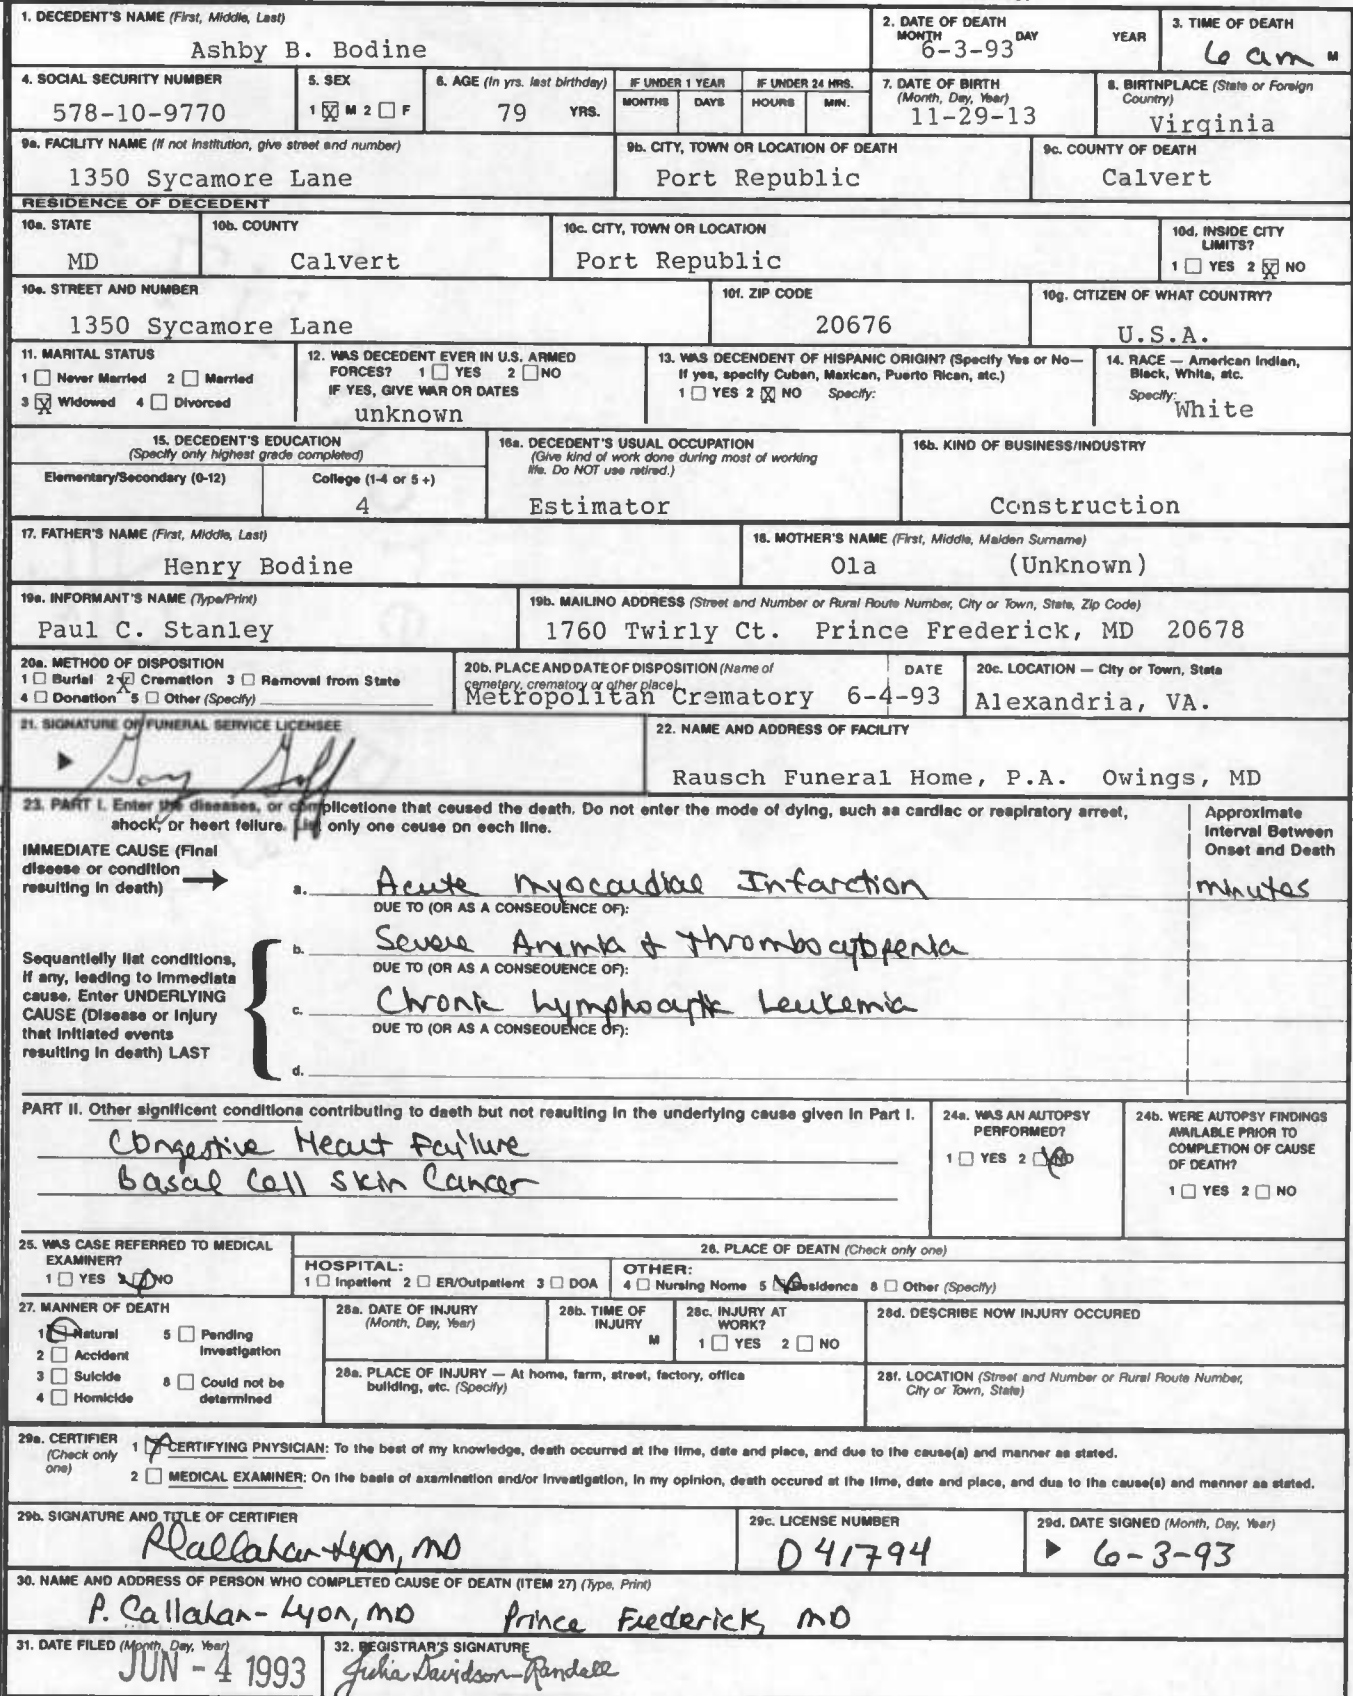 1. DECEDENT'S NAME (First, Middle, Last)
Ashby B. Bodine
2. DATE OF DEATH
MONTH DAY YEAR
6-3-93
3. TIME OF DEATH
6 am M
4. SOCIAL SECURITY NUMBER
578-10-9770
5. SEX
1 ☒ M 2 ☐ F
6. AGE (In yrs. last birthday)
79 YRS.
IF UNDER 1 YEAR
MONTHS DAYS
IF UNDER 24 HRS.
HOURS MIN.
7. DATE OF BIRTH
(Month, Day, Year)
11-29-13
8. BIRTHPLACE (State or Foreign
Country)
Virginia
9a. FACILITY NAME (If not institution, give street and number)
1350 Sycamore Lane
9b. CITY, TOWN OR LOCATION OF DEATH
Port Republic
9c. COUNTY OF DEATH
Calvert
RESIDENCE OF DECEDENT
10a. STATE
MD
10b. COUNTY
Calvert
10c. CITY, TOWN OR LOCATION
Port Republic
10d. INSIDE CITY
LIMITS?
1 ☐ YES 2 ☒ NO
10e. STREET AND NUMBER
1350 Sycamore Lane
10f. ZIP CODE
20676
10g. CITIZEN OF WHAT COUNTRY?
U.S.A.
11. MARITAL STATUS
1 ☐ Never Married 2 ☐ Married
3 ☒ Widowed 4 ☐ Divorced
12. WAS DECEDENT EVER IN U.S. ARMED
FORCES? 1 ☐ YES 2 ☐ NO
IF YES, GIVE WAR OR DATES
unknown
13. WAS DECENDENT OF HISPANIC ORIGIN? (Specify Yes or No—
If yes, specify Cuban, Maxican, Puerto Rican, atc.)
1 ☐ YES 2 ☒ NO Specify:
14. RACE — American Indian,
Black, White, atc.
Specify: White
15. DECEDENT'S EDUCATION
(Specify only highest grade completed)
Elementary/Secondary (0-12)
College (1-4 or 5 +)
4
16a. DECEDENT'S USUAL OCCUPATION
(Give kind of work done during most of working
life. Do NOT use retired.)
Estimator
16b. KIND OF BUSINESS/INDUSTRY
Construction
17. FATHER'S NAME (First, Middle, Last)
Henry Bodine
18. MOTHER'S NAME (First, Middle, Maiden Surname)
Ola (Unknown)
19a. INFORMANT'S NAME (Type/Print)
Paul C. Stanley
19b. MAILINO ADDRESS (Street and Number or Rural Route Number, City or Town, State, Zip Code)
1760 Twirly Ct. Prince Frederick, MD 20678
20a. METHOD OF DISPOSITION
1 ☐ Burial 2 ☒ Cremation 3 ☐ Removal from State
4 ☐ Donation 5 ☐ Other (Specify)
20b. PLACE AND DATE OF DISPOSITION (Name of
cemetery, crematory or other place)
DATE
Metropolitan Crematory 6-4-93
20c. LOCATION — City or Town, Stata
Alexandria, VA.
21. SIGNATURE OF FUNERAL SERVICE LICENSEE
22. NAME AND ADDRESS OF FACILITY
Rausch Funeral Home, P.A. Owings, MD
23. PART I. Enter the diseases, or complicetions that ceused the death. Do not enter the mode of dying, such as cardiac or reapiratory arreet,
ahock, or heert feilure. List only one ceuse on eech line.
Approximate
Interval Between
Onset and Death
IMMEDIATE CAUSE (Final
diseese or condition
resulting in death)
a. Acute Myocardial Infarction
minutes
DUE TO (OR AS A CONSEQUENCE OF):
b. Severe Anemia & Thrombocytopenia
DUE TO (OR AS A CONSEQUENCE OF):
c. Chronic Lymphocytic Leukemia
DUE TO (OR AS A CONSEQUENCE OF):
d.
Sequantielly liat conditions,
if any, leading to immediata
cause. Enter UNDERLYING
CAUSE (Disease or injury
that initiated events
resulting in death) LAST
PART II. Other significent conditiona contributing to daeth but not reaulting in the underlying cause given in Part I.
Congestive Heart Failure
Basal Cell Skin Cancer
24a. WAS AN AUTOPSY
PERFORMED?
1 ☐ YES 2 ☒ NO
24b. WERE AUTOPSY FINDINGS
AVAILABLE PRIOR TO
COMPLETION OF CAUSE
OF DEATH?
1 ☐ YES 2 ☐ NO
25. WAS CASE REFERRED TO MEDICAL
EXAMINER?
1 ☐ YES 2 ☒ NO
26. PLACE OF DEATH (Check only one)
HOSPITAL:
1 ☐ Inpatient 2 ☐ ER/Outpatient 3 ☐ DOA
OTHER:
4 ☐ Nursing Nome 5 ☒ Residenca 8 ☐ Other (Specify)
27. MANNER OF DEATH
1 ☒ Natural 5 ☐ Pending
Investigation
2 ☐ Accident
3 ☐ Suicide 8 ☐ Could not be
determined
4 ☐ Homicide
28a. DATE OF INJURY
(Month, Day, Year)
28b. TIME OF
INJURY
M
28c. INJURY AT
WORK?
1 ☐ YES 2 ☐ NO
28d. DESCRIBE NOW INJURY OCCURED
28a. PLACE OF INJURY — At home, farm, street, factory, offica
building, etc. (Specify)
28f. LOCATION (Street and Number or Rural Route Number,
City or Town, State)
29a. CERTIFIER
(Check only
one)
1 ☒ CERTIFYING PNYSICIAN: To the best of my knowledge, death occurred at the time, date and place, and due to the cause(a) and manner as stated.
2 ☐ MEDICAL EXAMINER: On the basia of axamination and/or investigation, in my opinion, death occured at the time, date and place, and dua to tha cause(s) and manner aa stated.
29b. SIGNATURE AND TITLE OF CERTIFIER
PCallahan-Lyon, MD
29c. LICENSE NUMBER
D 41794
29d. DATE SIGNED (Month, Day, Year)
6-3-93
30. NAME AND ADDRESS OF PERSON WHO COMPLETED CAUSE OF DEATH (ITEM 27) (Type, Print)
P. Callahan-Lyon, MD Prince Frederick, MD
31. DATE FILED (Month, Day, Year)
JUN - 4 1993
32. REGISTRAR'S SIGNATURE
Julia Davidson-Randall